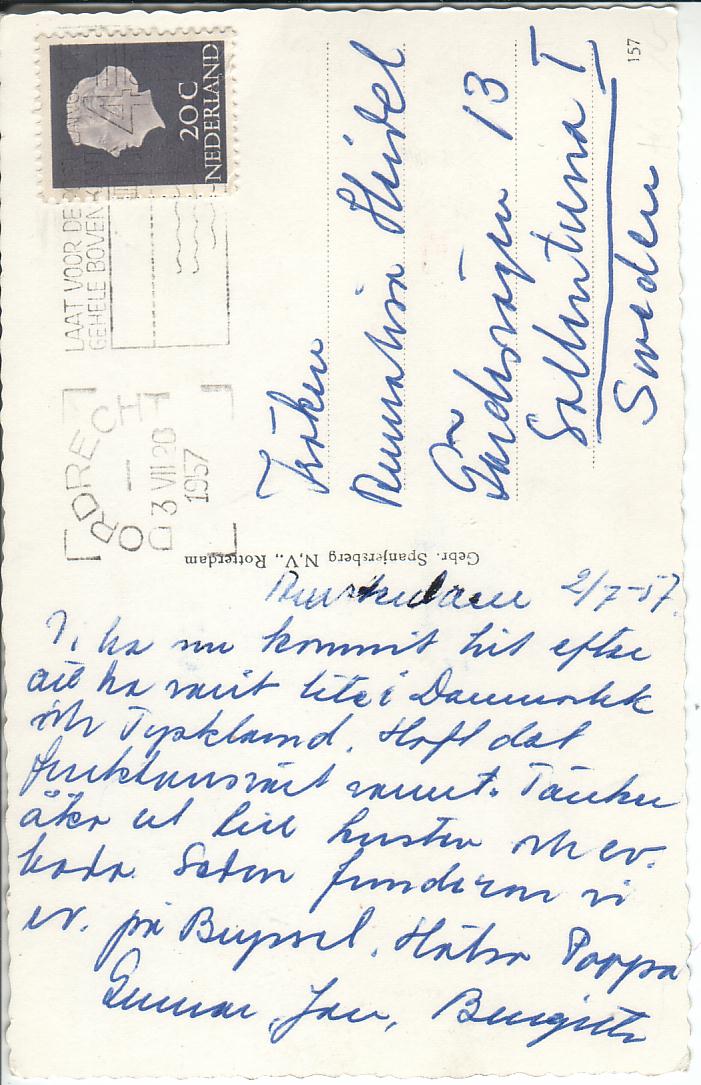 NEDERLAND
20 C
LAAT VOOR DE
GEHELE BOVEN
DORDRECHT
3 VII 20
1957
157
Fröken
Annalisa Heidel
Gärdesvägen 13
Sollentuna I
Sweden
Gebr. Spanjersberg N.V., Rotterdam
Amsterdam 2/7-57.
Vi ha nu kommit hit efter
att ha varit lite i Danmark
och Tyskland. Haft det
fruktansvärt varmt. Tänker
åka ut till kusten och ev.
bada. Sedan funderar vi
ev. på Bryssel. Hälsa Pappa
Gunnar, Jan, Birgitta